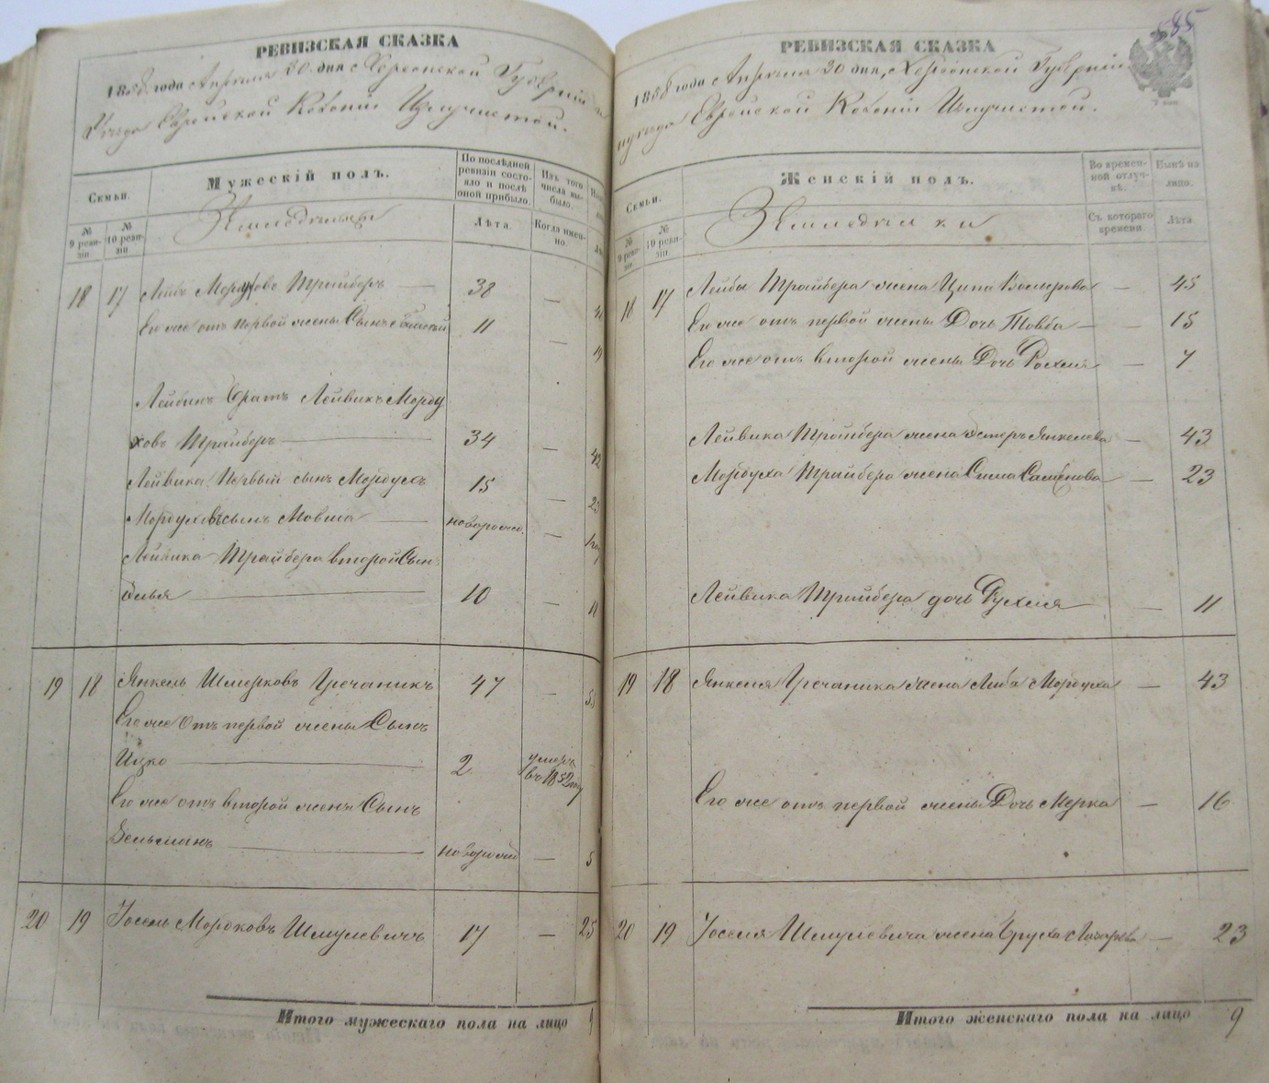 РЕВИЗСКАЯ СКАЗКА
1858 года Апреля 30 дня Херсонской Губерніи
Уезда Еврейской Колоніи Излучистой.
Семьи.
Мужескій полъ.
По последней ревизіи состояло и после оной прибыло.
Изъ того числа выбыло.
№ 9 ревизіи.
№ 10 ревизіи.
Земледельцы
Лѣта.
Когда именно.
18 17 Лейба Мордухово Трайберъ — 38 —
Его же отъ первой жены Сынъ 11
19
Лейбинъ Братъ Лейвикъ Морду
ховъ Трайберъ — 34 — 42
Лейвика Первый сынъ Мордухъ 15 — 23
Мордуховъ сынъ Мовша — новорожд. —
Лейвика Трайбера второй Сын
Элья — 10 —
19 18 Янкель Шмерковъ Гречаникъ 47 —
Его же Отъ первой жены Сынъ
Ицко — 2 умеръ въ 1852 году
Его же отъ второй жены Сынъ
Зельманъ — новорожд — 5
20 19 Іосель Мордковъ Шмулевичъ 17 — 25
Итого мужескаго пола на лицо
585
РЕВИЗСКАЯ СКАЗКА
1858 года Апреля 30 дня, Херсонской Губерніи
уезда Еврейской Колоніи Излучистой.
Семьи.
Женскій полъ.
Во временной отлучкѣ.
Нынѣ на лицо.
№ 9 ревизіи.
№ 10 ревизіи.
Земледелки
Съ котораго времени.
Лѣта.
18 17 Лейбы Трайбера жена Ципа — 45
Его же отъ первой жены Дочь Товба — 15
Его же отъ второй жены Дочь Рохля — 7
Лейвика Трайбера жена Эстеръ Янкелева — 43
Мордуха Трайбера жена Сима — 23
Лейвика Трайбера дочь Рухля — 11
19 18 Янкеля Гречаника жена Либа Мордуха — 43
Его же отъ первой жены Дочь Мерка — 16
20 19 Іоселя Шмулевича жена Бруха — 23
Итого женскаго пола на лицо 9